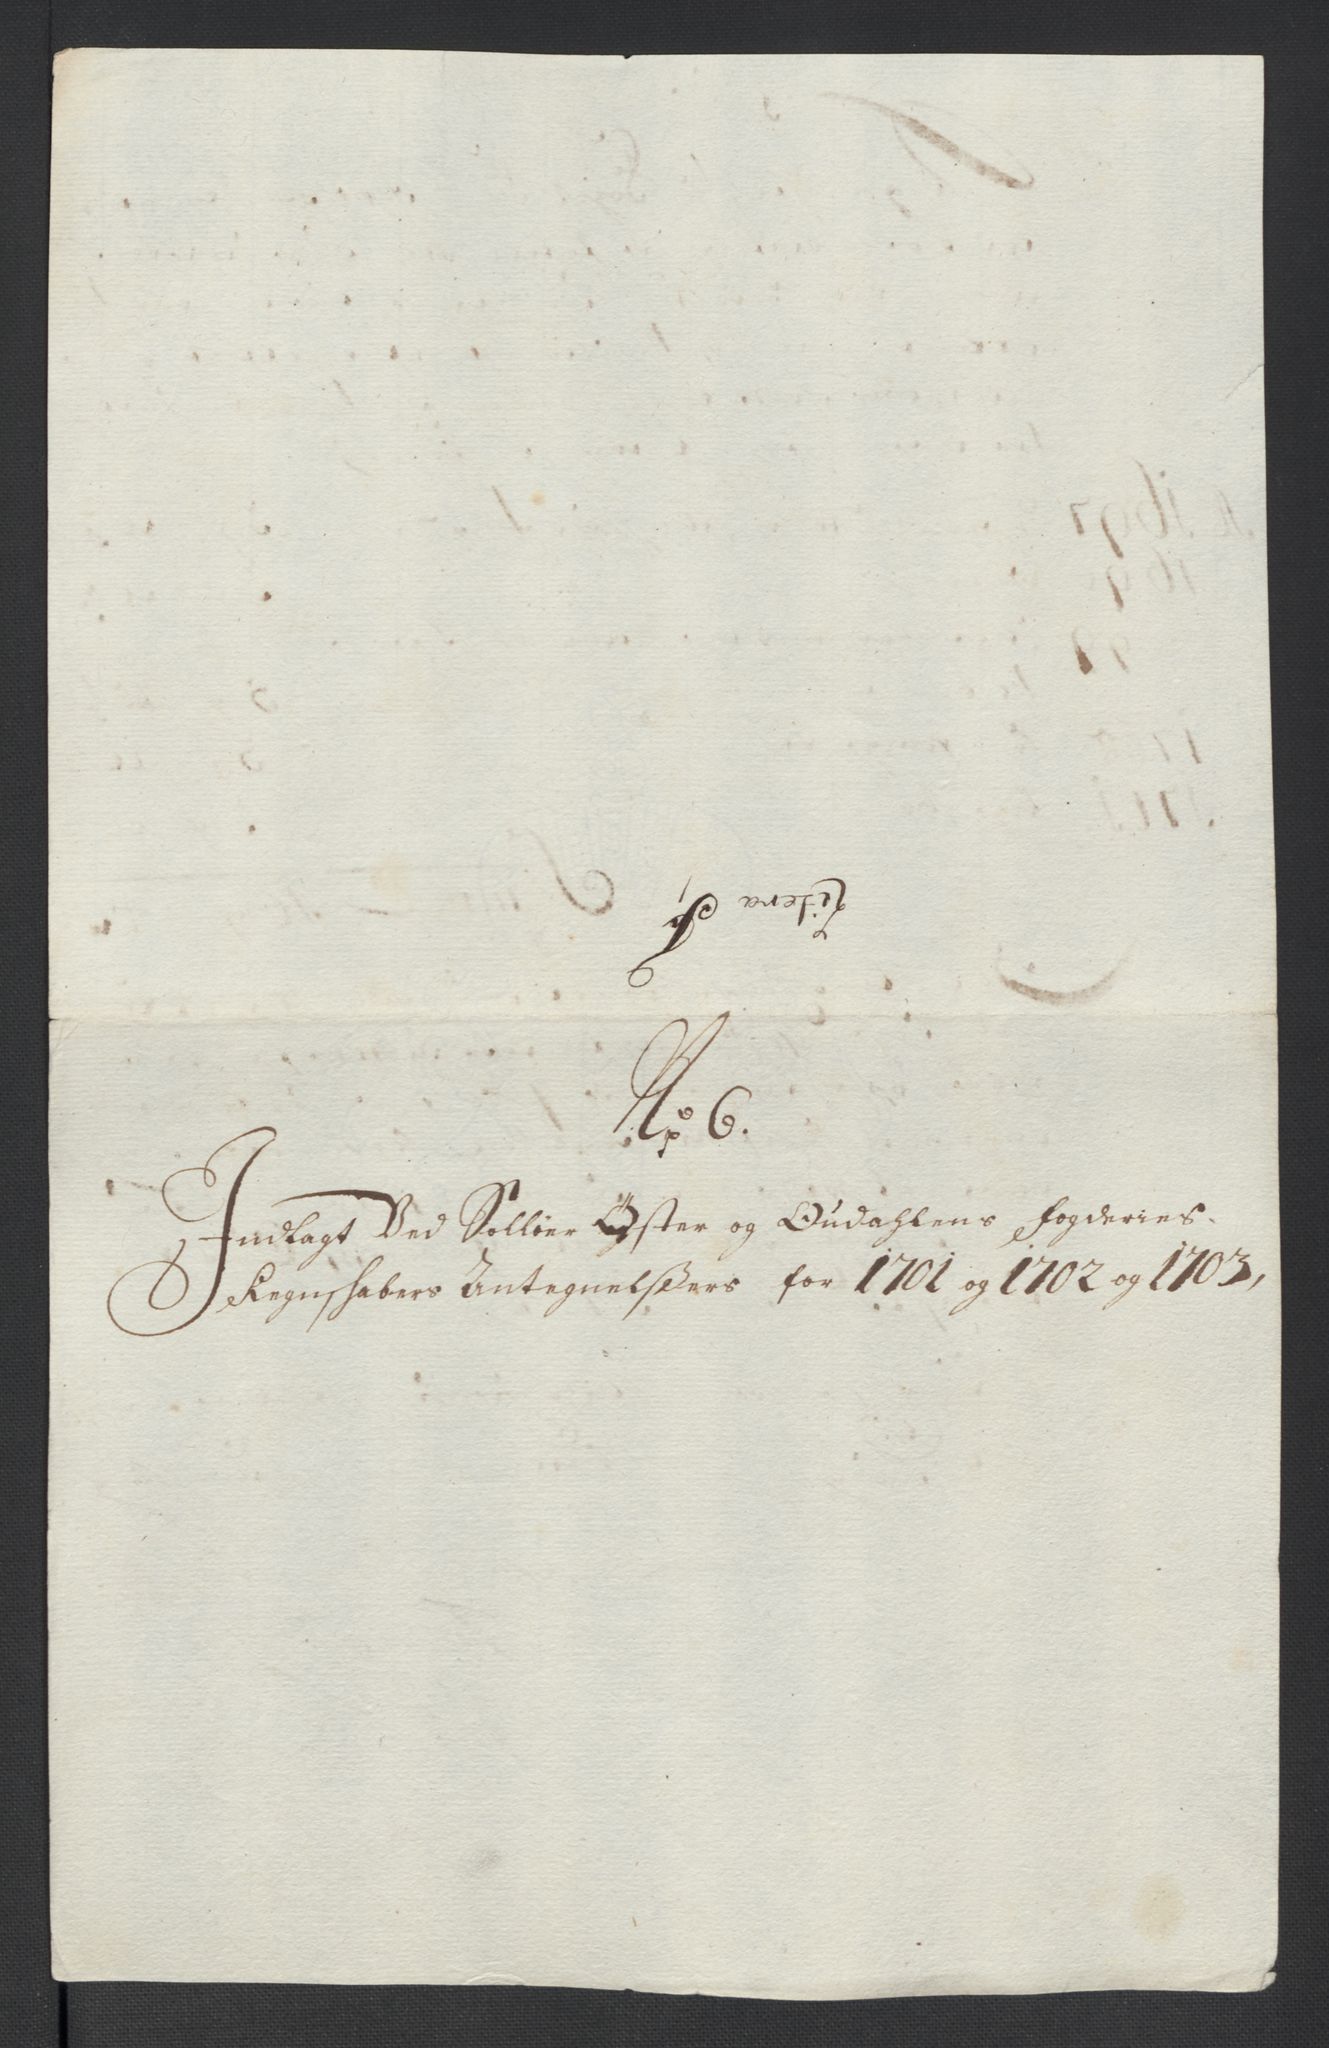 Litera
No 6.
Indlagt Ved Solløer Øster og Oudahlens fogderies
Regnskabers Antegnelsers for 1701 og 1702 og 1703,